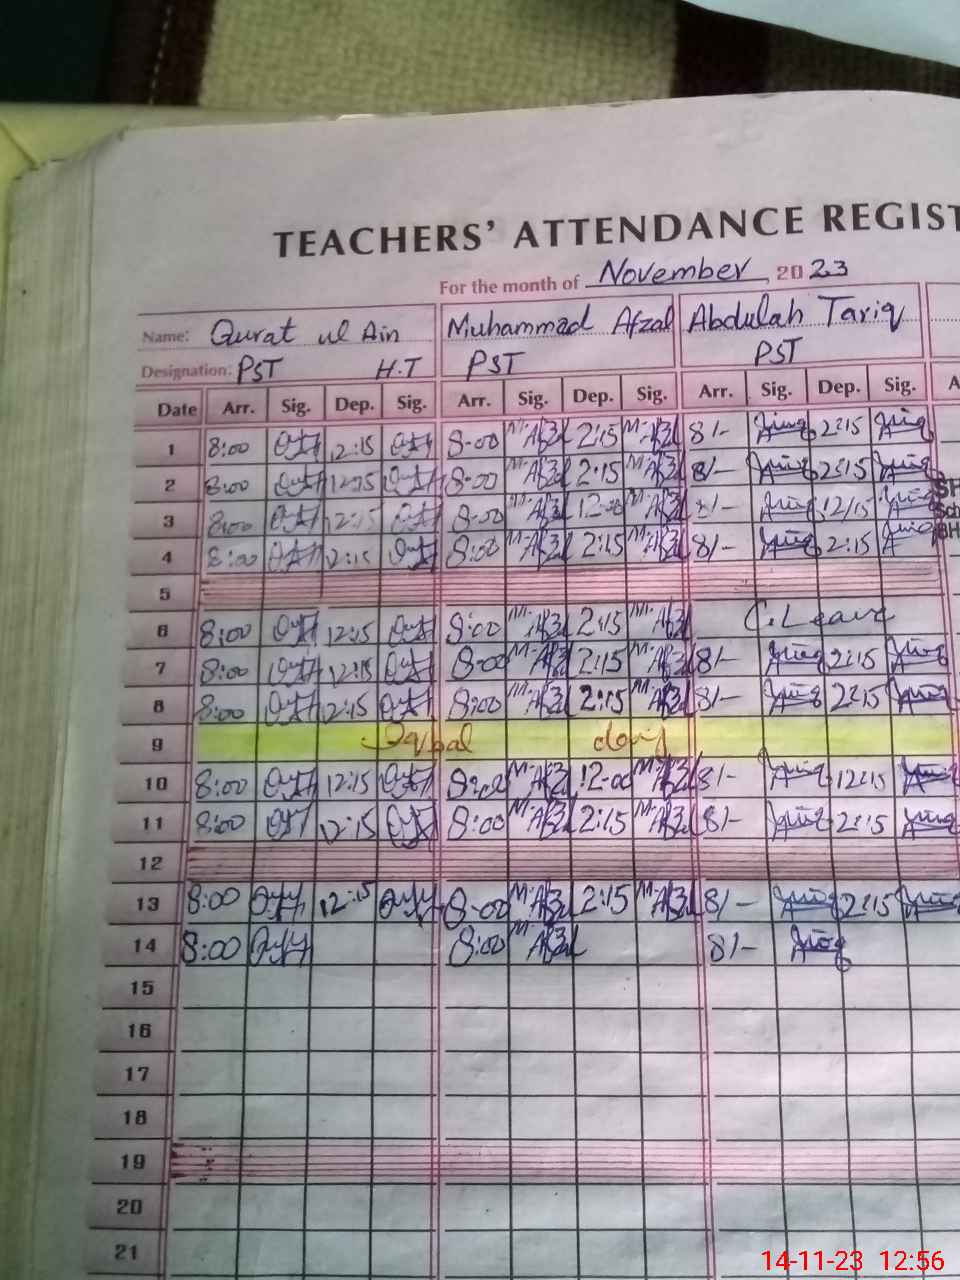 TEACHERS' ATTENDANCE REGIST
For the month of November, 2023
Name: Qurat ul Ain Muhammad Afzal Abdulah Tariq
Designation: PST H.T PST PST
Date Arr. Sig. Dep. Sig. Arr. Sig. Dep. Sig. Arr. Sig. Dep. Sig. A
1 8:00 12:15 8-00 M.Afzl 2:15 M.Afzl 8/- 2:15
2 8:00 12:15 8-00 M.Afzl 2:15 M.Afzl 8/- 2:15
SH
3 8:00 12:15 8-00 M.Afzl 12-00 M.Afzl 8/- 12/15
Sch
4 8:00 12:15 8:00 M.Afzl 2:15 M.Afzl 8/- 2:15
BH
5
6 8:00 12:15 8:00 M.Afzl 2:15 M.Afzl C.Leave
7 8:00 12:15 8-00 M.Afzl 2:15 M.Afzl 8/- 2:15
8 8:00 12:15 8:00 M.Afzl 2:15 M.Afzl 8/- 2:15
9 Iqbal day
10 8:00 12:15 8:00 M.Afzl 12-00 M.Afzl 8/- 12:15
11 8:00 12:15 8:00 M.Afzl 2:15 M.Afzl 8/- 2:15
12
13 8:00 12:15 8-00 M.Afzl 2:15 M.Afzl 8/- 2:15
14 8:00 8:00 M.Afzl 8/-
15
16
17
18
19
20
21
14-11-23 12:56